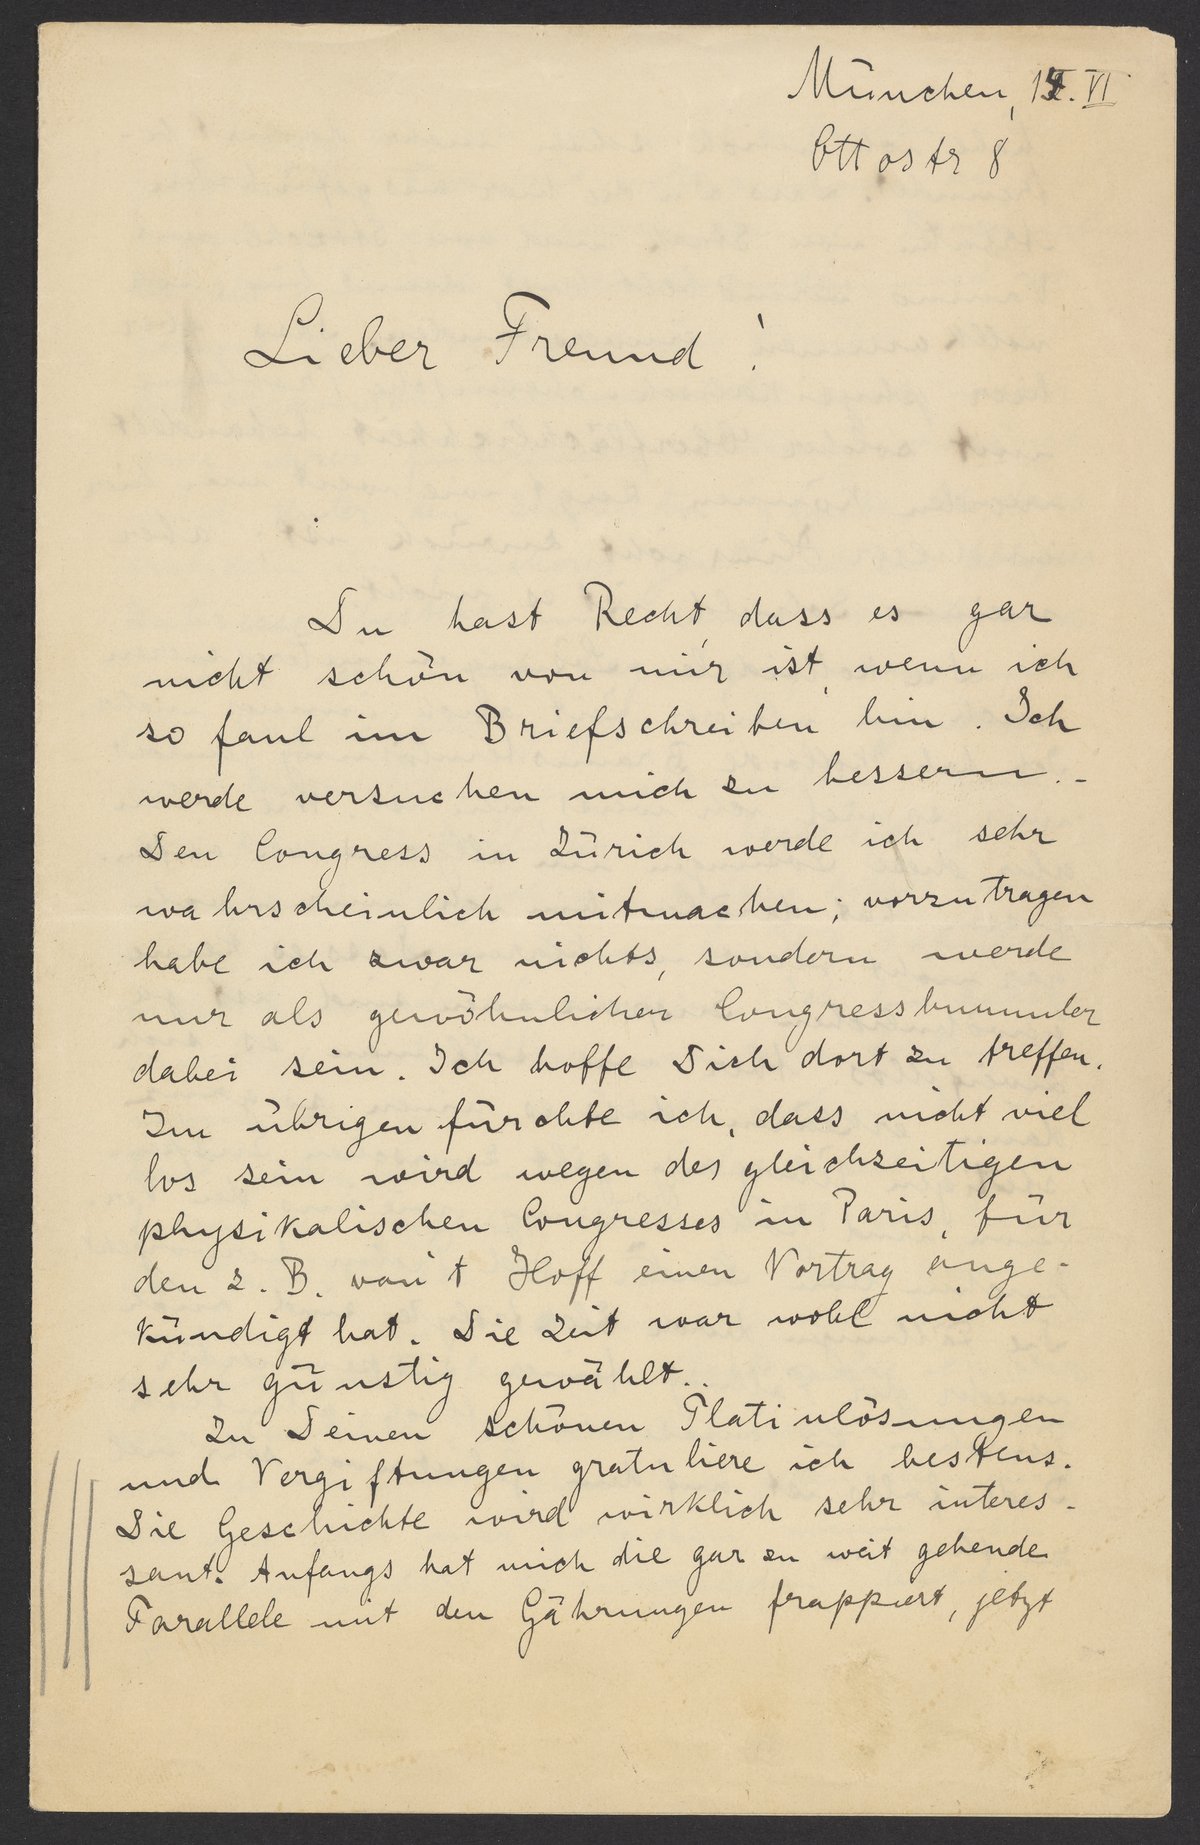 München, . VI
Ottostr 8
Lieber Freund!
Du hast Recht, dass es gar
nicht schön von mir ist, wenn ich
so faul im Briefschreiben bin. Ich
werde versuchen mich zu bessern. -
Den Congress in Zürich werde ich sehr
wahrscheinlich mitmachen; vorzutragen
habe ich zwar nichts, sondern werde
nur als gewöhnlicher Congressbummler
dabei sein. Ich hoffe Dich dort zu treffen.
Im übrigen fürchte ich, dass nicht viel
los sein wird wegen des gleichzeitigen
physikalischen Congresses in Paris, für
den z. B. van't Hoff einen Vortrag ange-
kündigt hat. Die Zeit war wohl nicht
sehr günstig gewählt..
Zu Deinen schönen Platinlösungen
und Vergiftungen gratuliere ich bestens.
Die Geschichte wird wirklich sehr interes-
sant. Anfangs hat mich die gar zu weit gehende
Parallele mit den Gährungen frappiert, jetzt